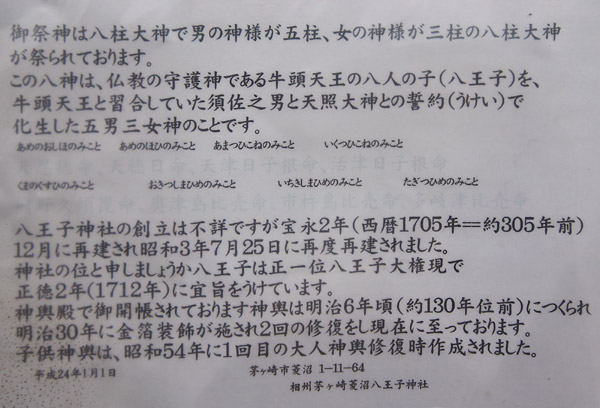 御祭神は八柱大神で男の神様が五柱、女の神様が三柱の八柱大神
が祭られております。
この八神は、仏教の守護神である牛頭天王の八人の子(八王子)を、
牛頭天王と習合していた須佐之男と天照大神との誓約(うけい)で
化生した五男三女神のことです。
あめのおしほのみこと あめのほひのみこと あまつひこねのみこと いくつひこねのみこと
くまのくすひのみこと おきつしまひめのみこと いちきしまひめのみこと たぎつひめのみこと
八王子神社の創立は不詳ですが宝永2年(西暦1705年==約305年前)
12月に再建され昭和3年7月25日に再度再建されました。
神社の位と申しましょうか八王子は正一位八王子大権現で
正徳2年(1712年)に宣旨をうけています。
神輿殿で御開帳されております神輿は明治6年頃(約130年位前)につくられ
明治30年に金箔装飾が施され2回の修復をし現在に至っております。
子供神輿は、昭和54年に1回目の大人神輿修復時作成されました。
平成24年1月1日 茅ヶ崎市菱沼 1-11-64
相州茅ヶ崎菱沼八王子神社